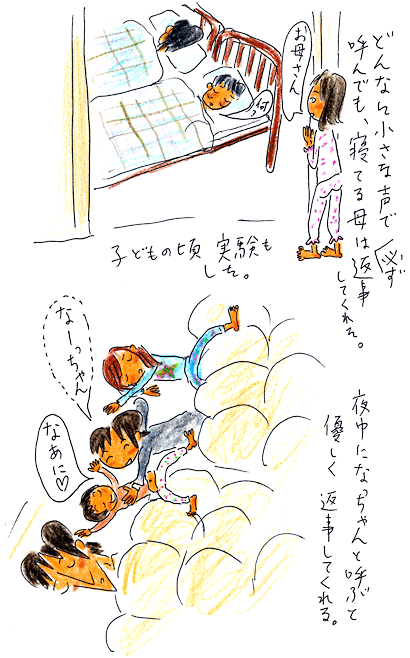 どんなに小さな声で
呼んでも、寝てる母は必ず返事
してくれた。
お母さん
何
子どもの頃 実験も
した。
夜中になっちゃんと呼ぶと
優しく 返事してくれる。
なーっちゃん
なあに♡